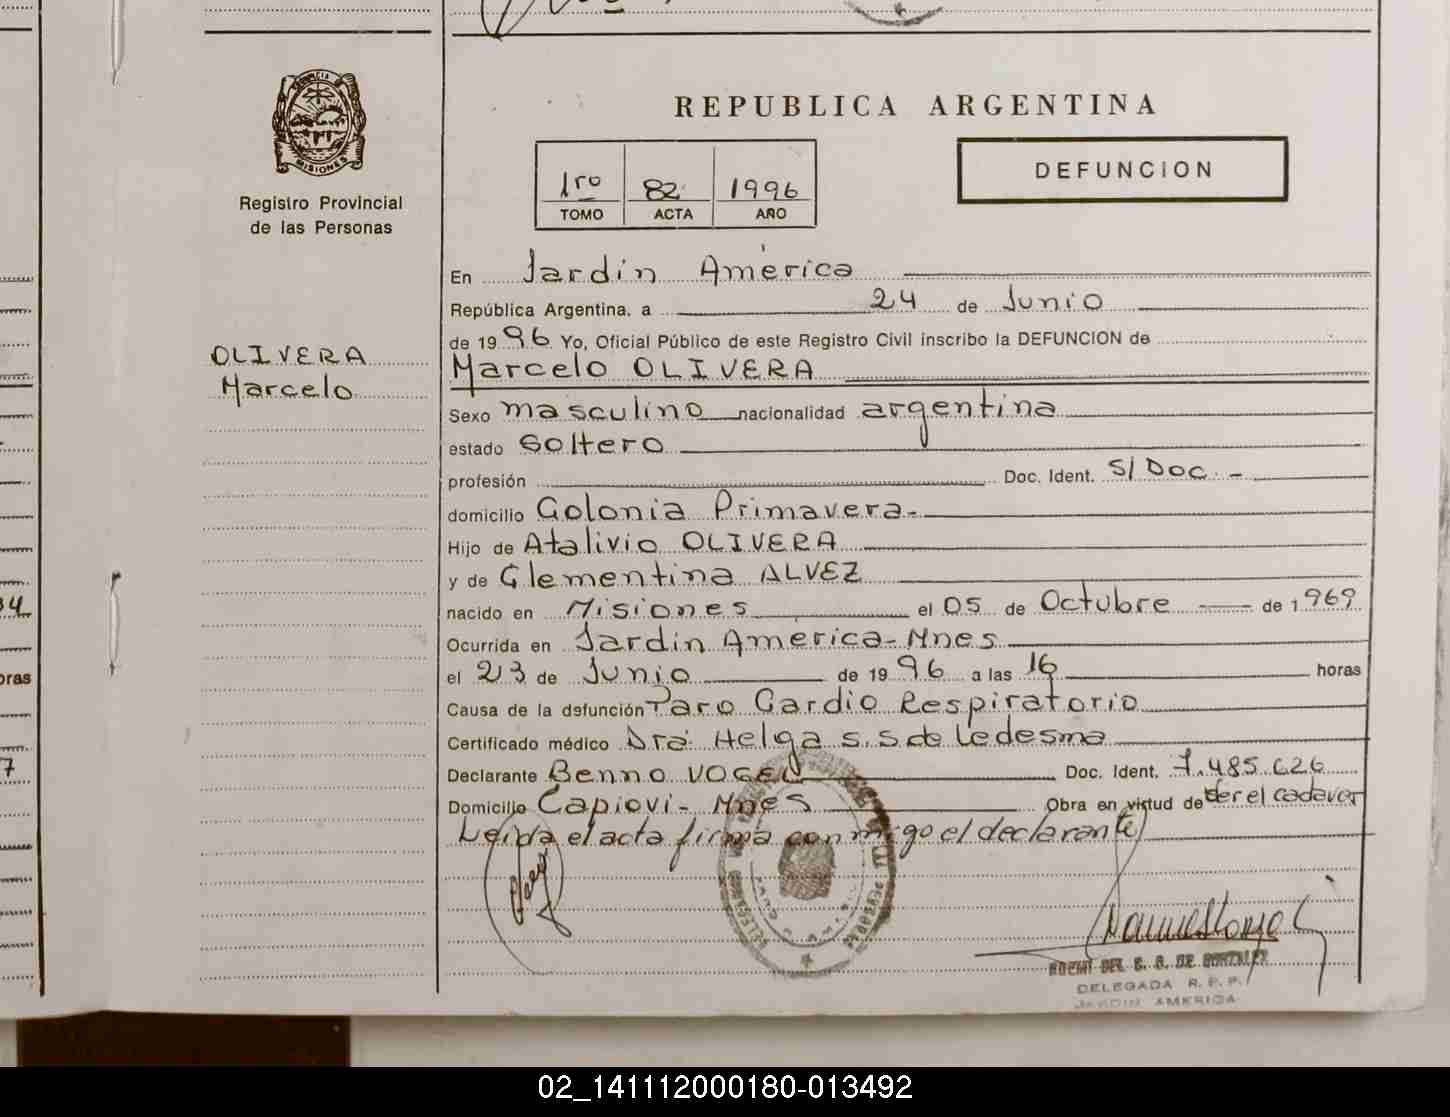 PROVINCIA DE
MISIONES
Registro Provincial
de las Personas
OLIVERA
Marcelo
REPUBLICA ARGENTINA
1ro 82 1996
TOMO ACTA AÑO
DEFUNCION
En Jardín América
República Argentina, a 24 de Junio
de 1996 Yo, Oficial Público de este Registro Civil inscribo la DEFUNCION de
Marcelo OLIVERA
Sexo masculino nacionalidad argentina
estado Soltero
profesión Doc. Ident. S/Doc. -
domicilio Colonia Primavera-
Hijo de Atalivio OLIVERA
y de Clementina ALVEZ
nacido en Misiones el 05 de Octubre de 1969
Ocurrida en Jardín América-Mnes
el 23 de Junio de 1996 a las 16 horas
Causa de la defunción Paro Cardio Respiratorio
Certificado médico Dra Helga S.S.de Ledesma
Declarante Benno VOGEL Doc. Ident. 7.485.626
Domicilio Capioví- Mnes Obra en virtud de ver el cadaver
Leida el acta firma conmigo el declarante
NOEMI DEL C. DE GONZALEZ
DELEGADA R. P. P.
JARDIN AMERICA
34
oras
7
02_141112000180-013492